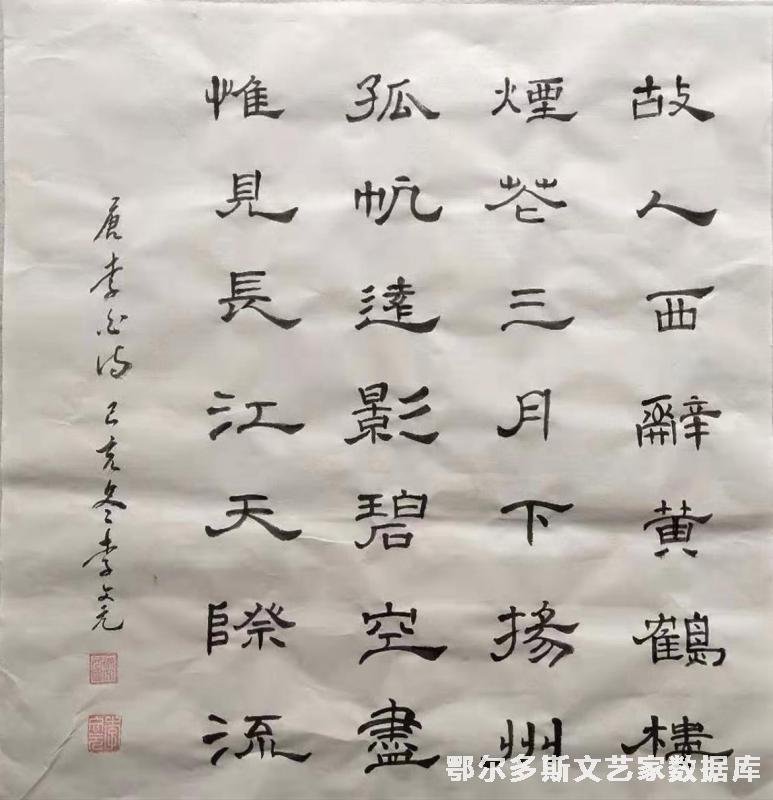 故人西辭黄鶴樓
煙花三月下揚州
孤帆遠影碧空盡
惟見長江天際流
唐李白詩 己亥冬 李文元
鄂尔多斯文艺家数据库